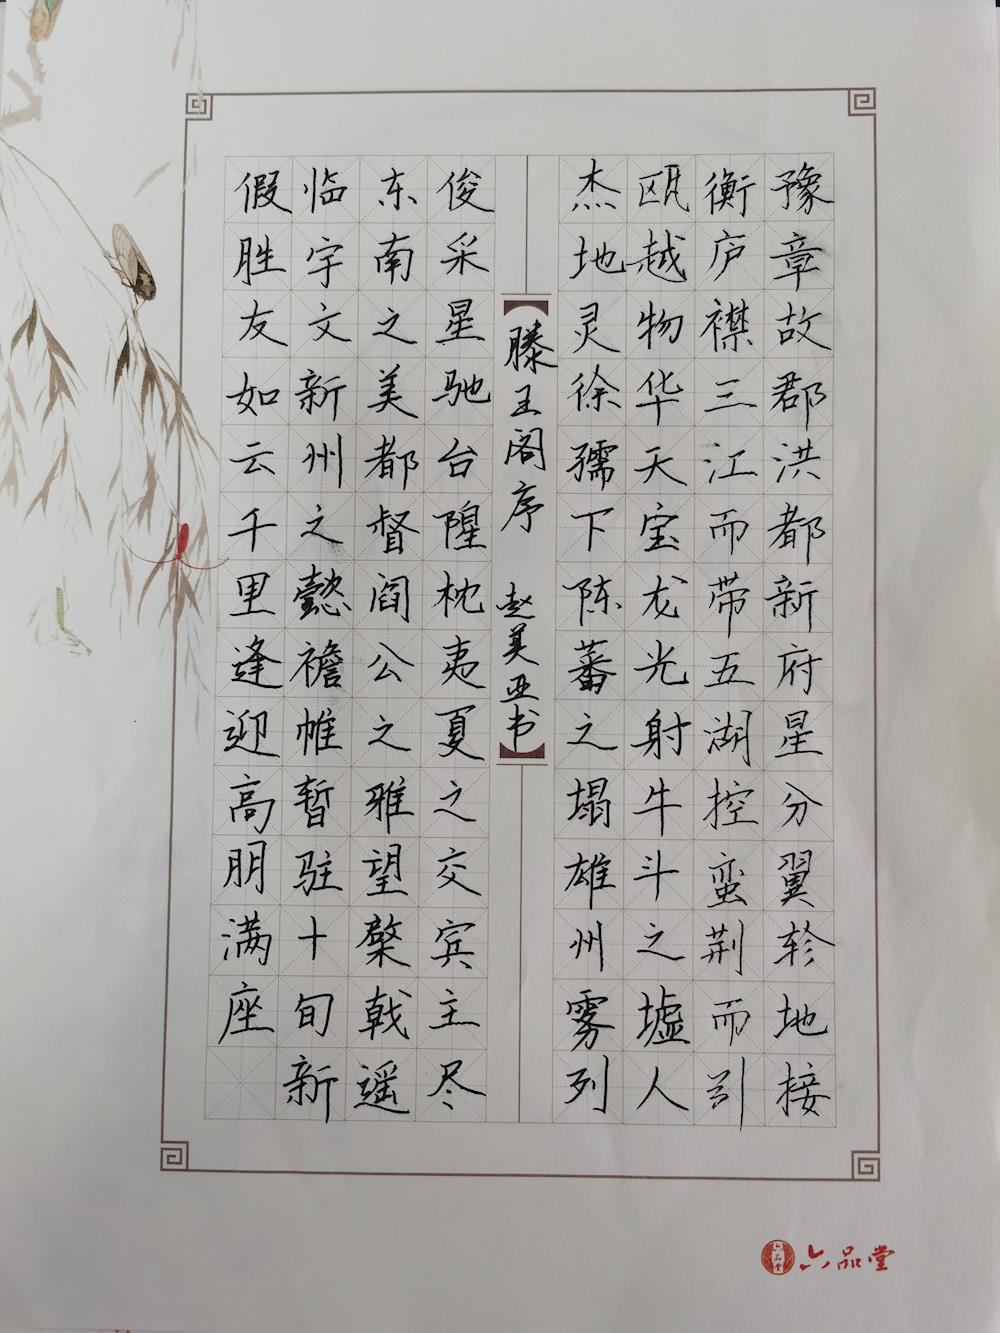 豫章故郡洪都新府星分翼轸地接
衡庐襟三江而带五湖控蛮荆而引
瓯越物华天宝龙光射牛斗之墟人
杰地灵徐孺下陈蕃之塌雄州雾列
滕王阁序 赵美亚书
俊采星驰台隍枕夷夏之交宾主尽
东南之美都督阎公之雅望棨戟遥
临宇文新州之懿襜帷暂驻十旬新
假胜友如云千里逢迎高朋满座
六品堂
六品堂